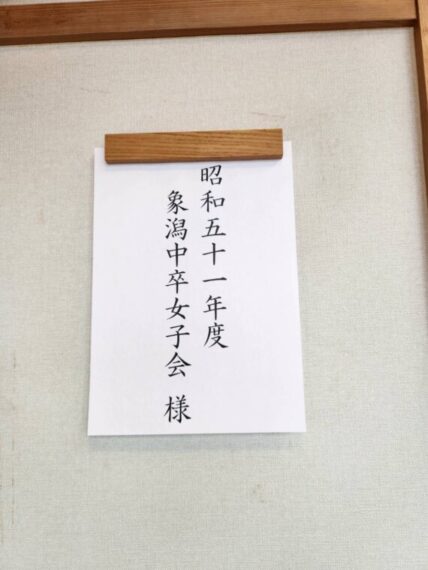 昭和五十一年度
象潟中卒女子会 様